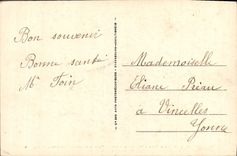 Bon souvenir
Bonne santé
Mme Foin
Mademoiselle
Eliane Préau
à Vincelles
Yonne